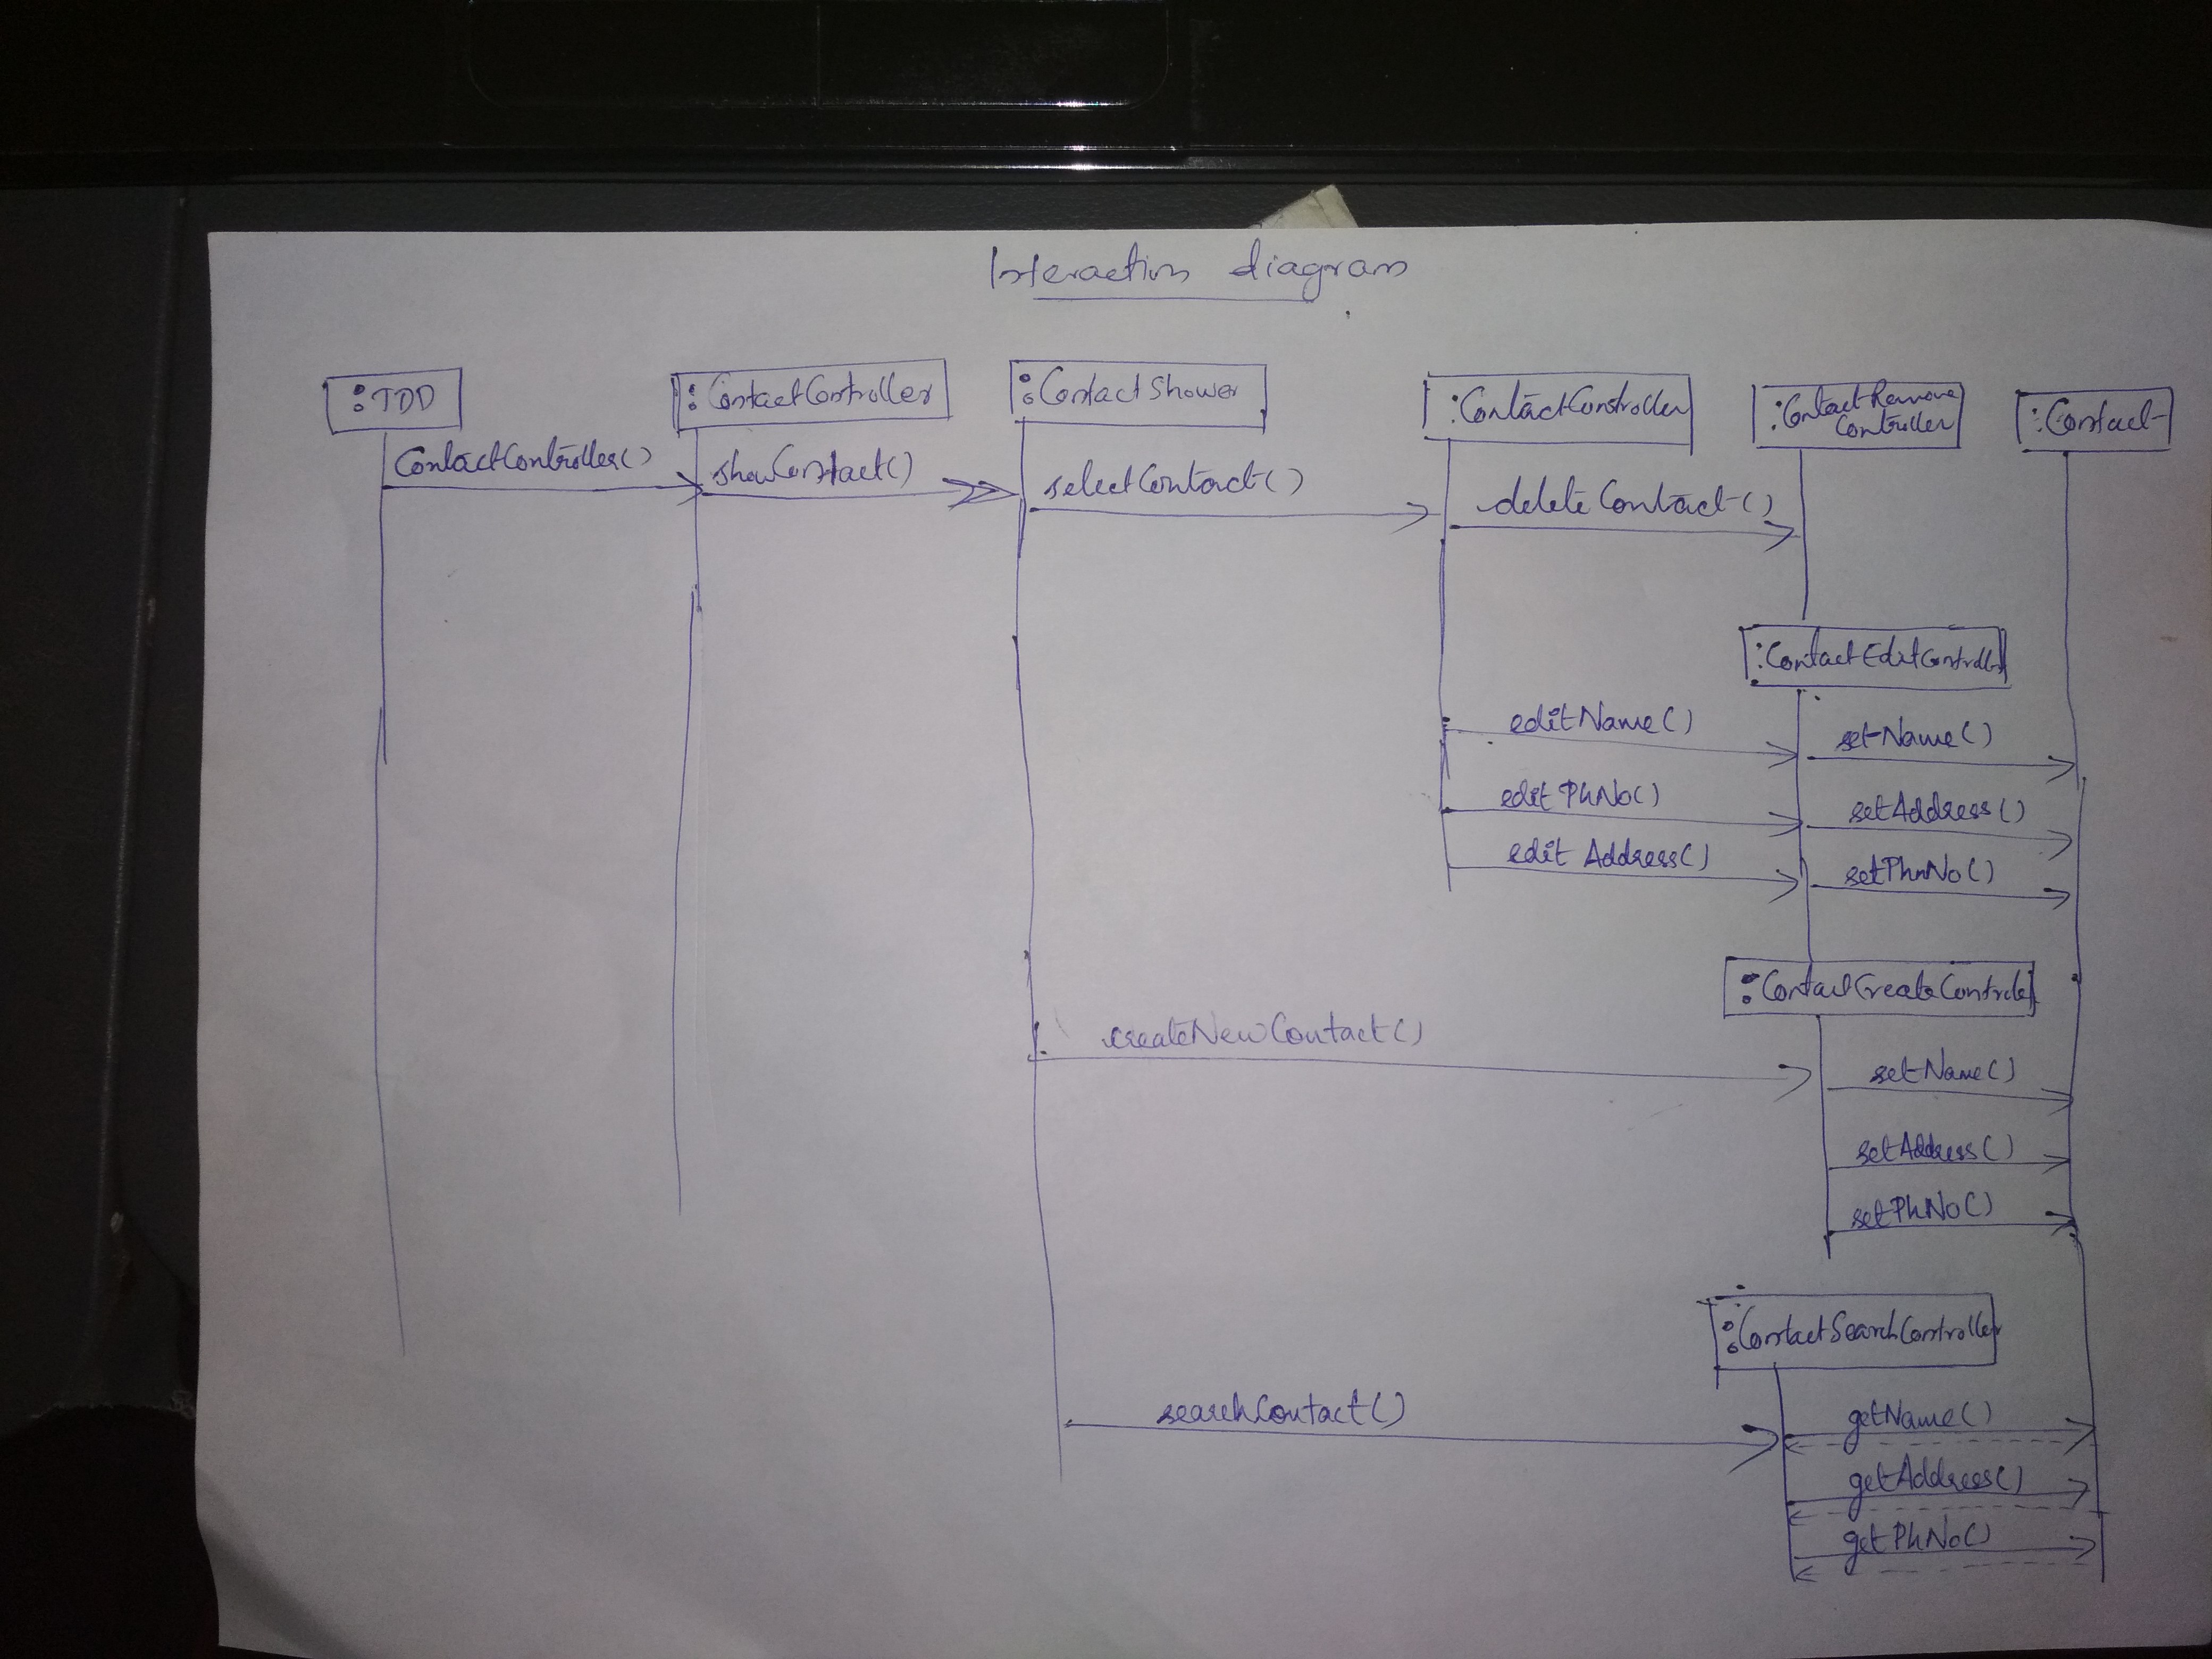 Interaction diagram
:TDD
:ContactController
:ContactShower
:ContactController
:ContactRemove
Controller
:Contact
ContactController()
showContact()
selectContact()
deleteContact()
:ContactEditController
editName()
setName()
editPhNo()
setAddress()
edit Address()
setPhnNo()
:ContactCreateController
createNewContact()
setName()
setAddress()
setPhNo()
:ContactSearchController
searchContact()
getName()
getAddress()
getPhNo()